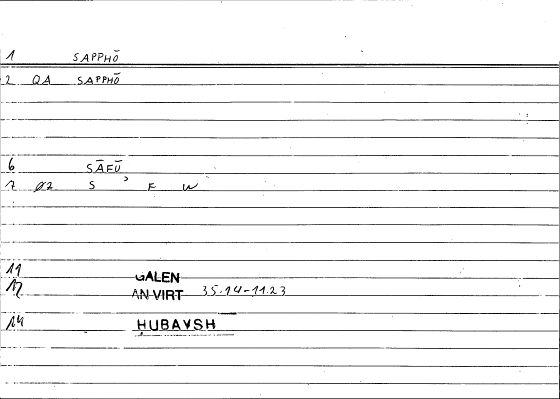 1 SAPPHŌ
2 QA SAPPHŌ
6 SĀFŪ
7 Ø2 S ʾ F W
11 GALEN
12 AN VIRT 35.14-11.23
14 ḤUBAYSH